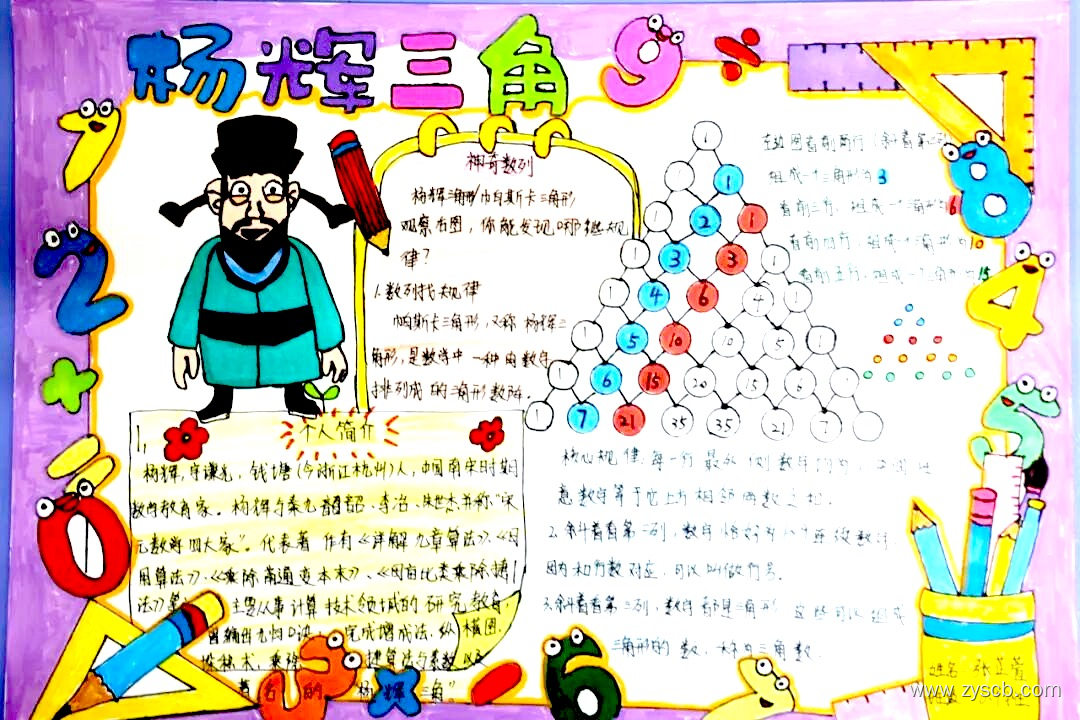 杨辉三角
神奇数列
杨辉三角形 帕斯卡三角形
观察右图，你能发现哪些规
律？
1.数列找规律
帕斯卡三角形，又称 杨辉三
角形，是数学中 一种由数字
排列成 的三角形数阵。
1
1 1
1 2 1
1 3 3 1
1 4 6 4 1
1 5 10 10 5 1
1 6 15 20 15 6 1
1 7 21 35 35 21 7 1
组成一个三角形为 3
看前三行，组成一个三角形为 6
看前四行，组成一个三角形为 10
看前五行，组成一个三角形为 15
1,
个人简介
杨辉，字谦光，钱塘（今浙江杭州）人，中国南宋时期
数学教育家。杨辉与秦九韶、李冶、朱世杰并称“宋
元数学四大家”。代表著 作有《详解九章算法》、《日
用算法》、《乘除 通变本末》、《田亩比类乘除捷
法》 主要从事计算 技术领域的 研究教育，
完成增成法，纵横图，
著名 的 “杨 辉 三角”
核心规律 每一行 最外 侧数字均为
意数字等于它上方相邻两数之和。
2.斜着看第二列，数字恰好为 连续数字
3.斜着看第三列，数字都是三角形 这些可以组成
三角形的 数，称为三角数。
姓名
www.zyscb.com